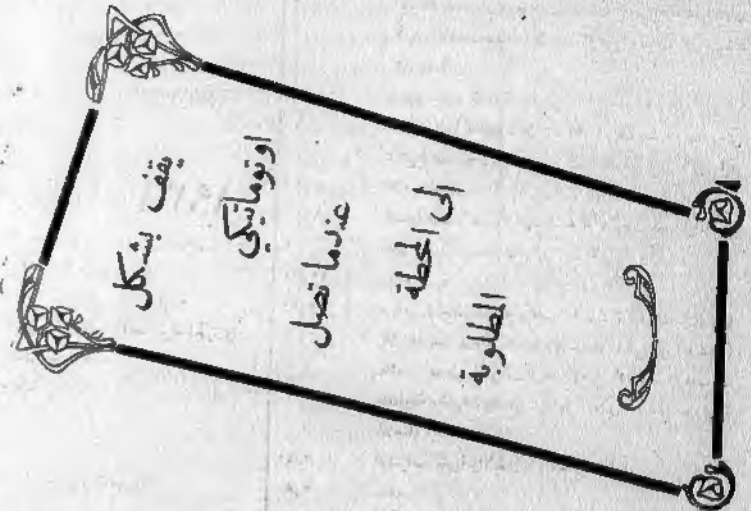 يقف بشكل
اوتوماتيكي
عندما تصل
الى المحطة
المطلوبة